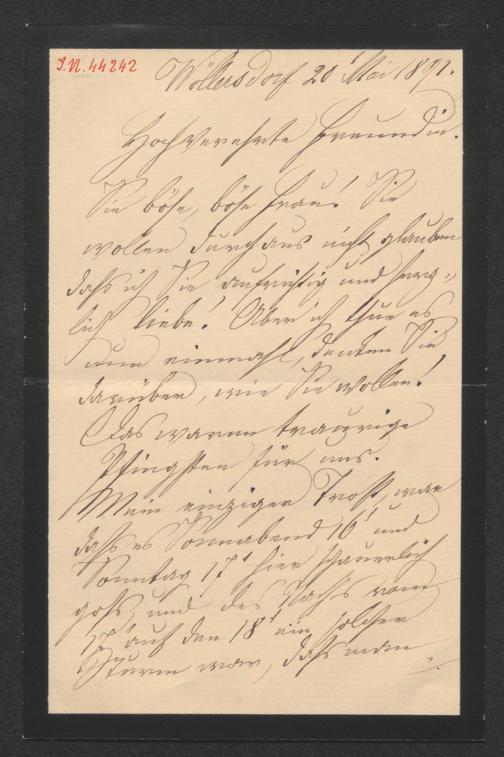 I.N. 44242
Wöllersdorf 20 Mai 1891.
Hochverehrte Freundin.
Sie böse, böse Frau! Sie
wollen durchaus nicht glauben
daß ich Sie aufrichtig und herz„
lich liebe! Aber ich thue es
nun einmahl, denken Sie
darüber, wie Sie wollen!
Das waren traurige
Pfingsten für uns.
Mein einziger Trost, war
daß es Sonnabend 16t und
Sonntag 17t hier schauerlich
goß, und des Nachts vom
17t auf den 18t ein solcher
Sturm war, daß man